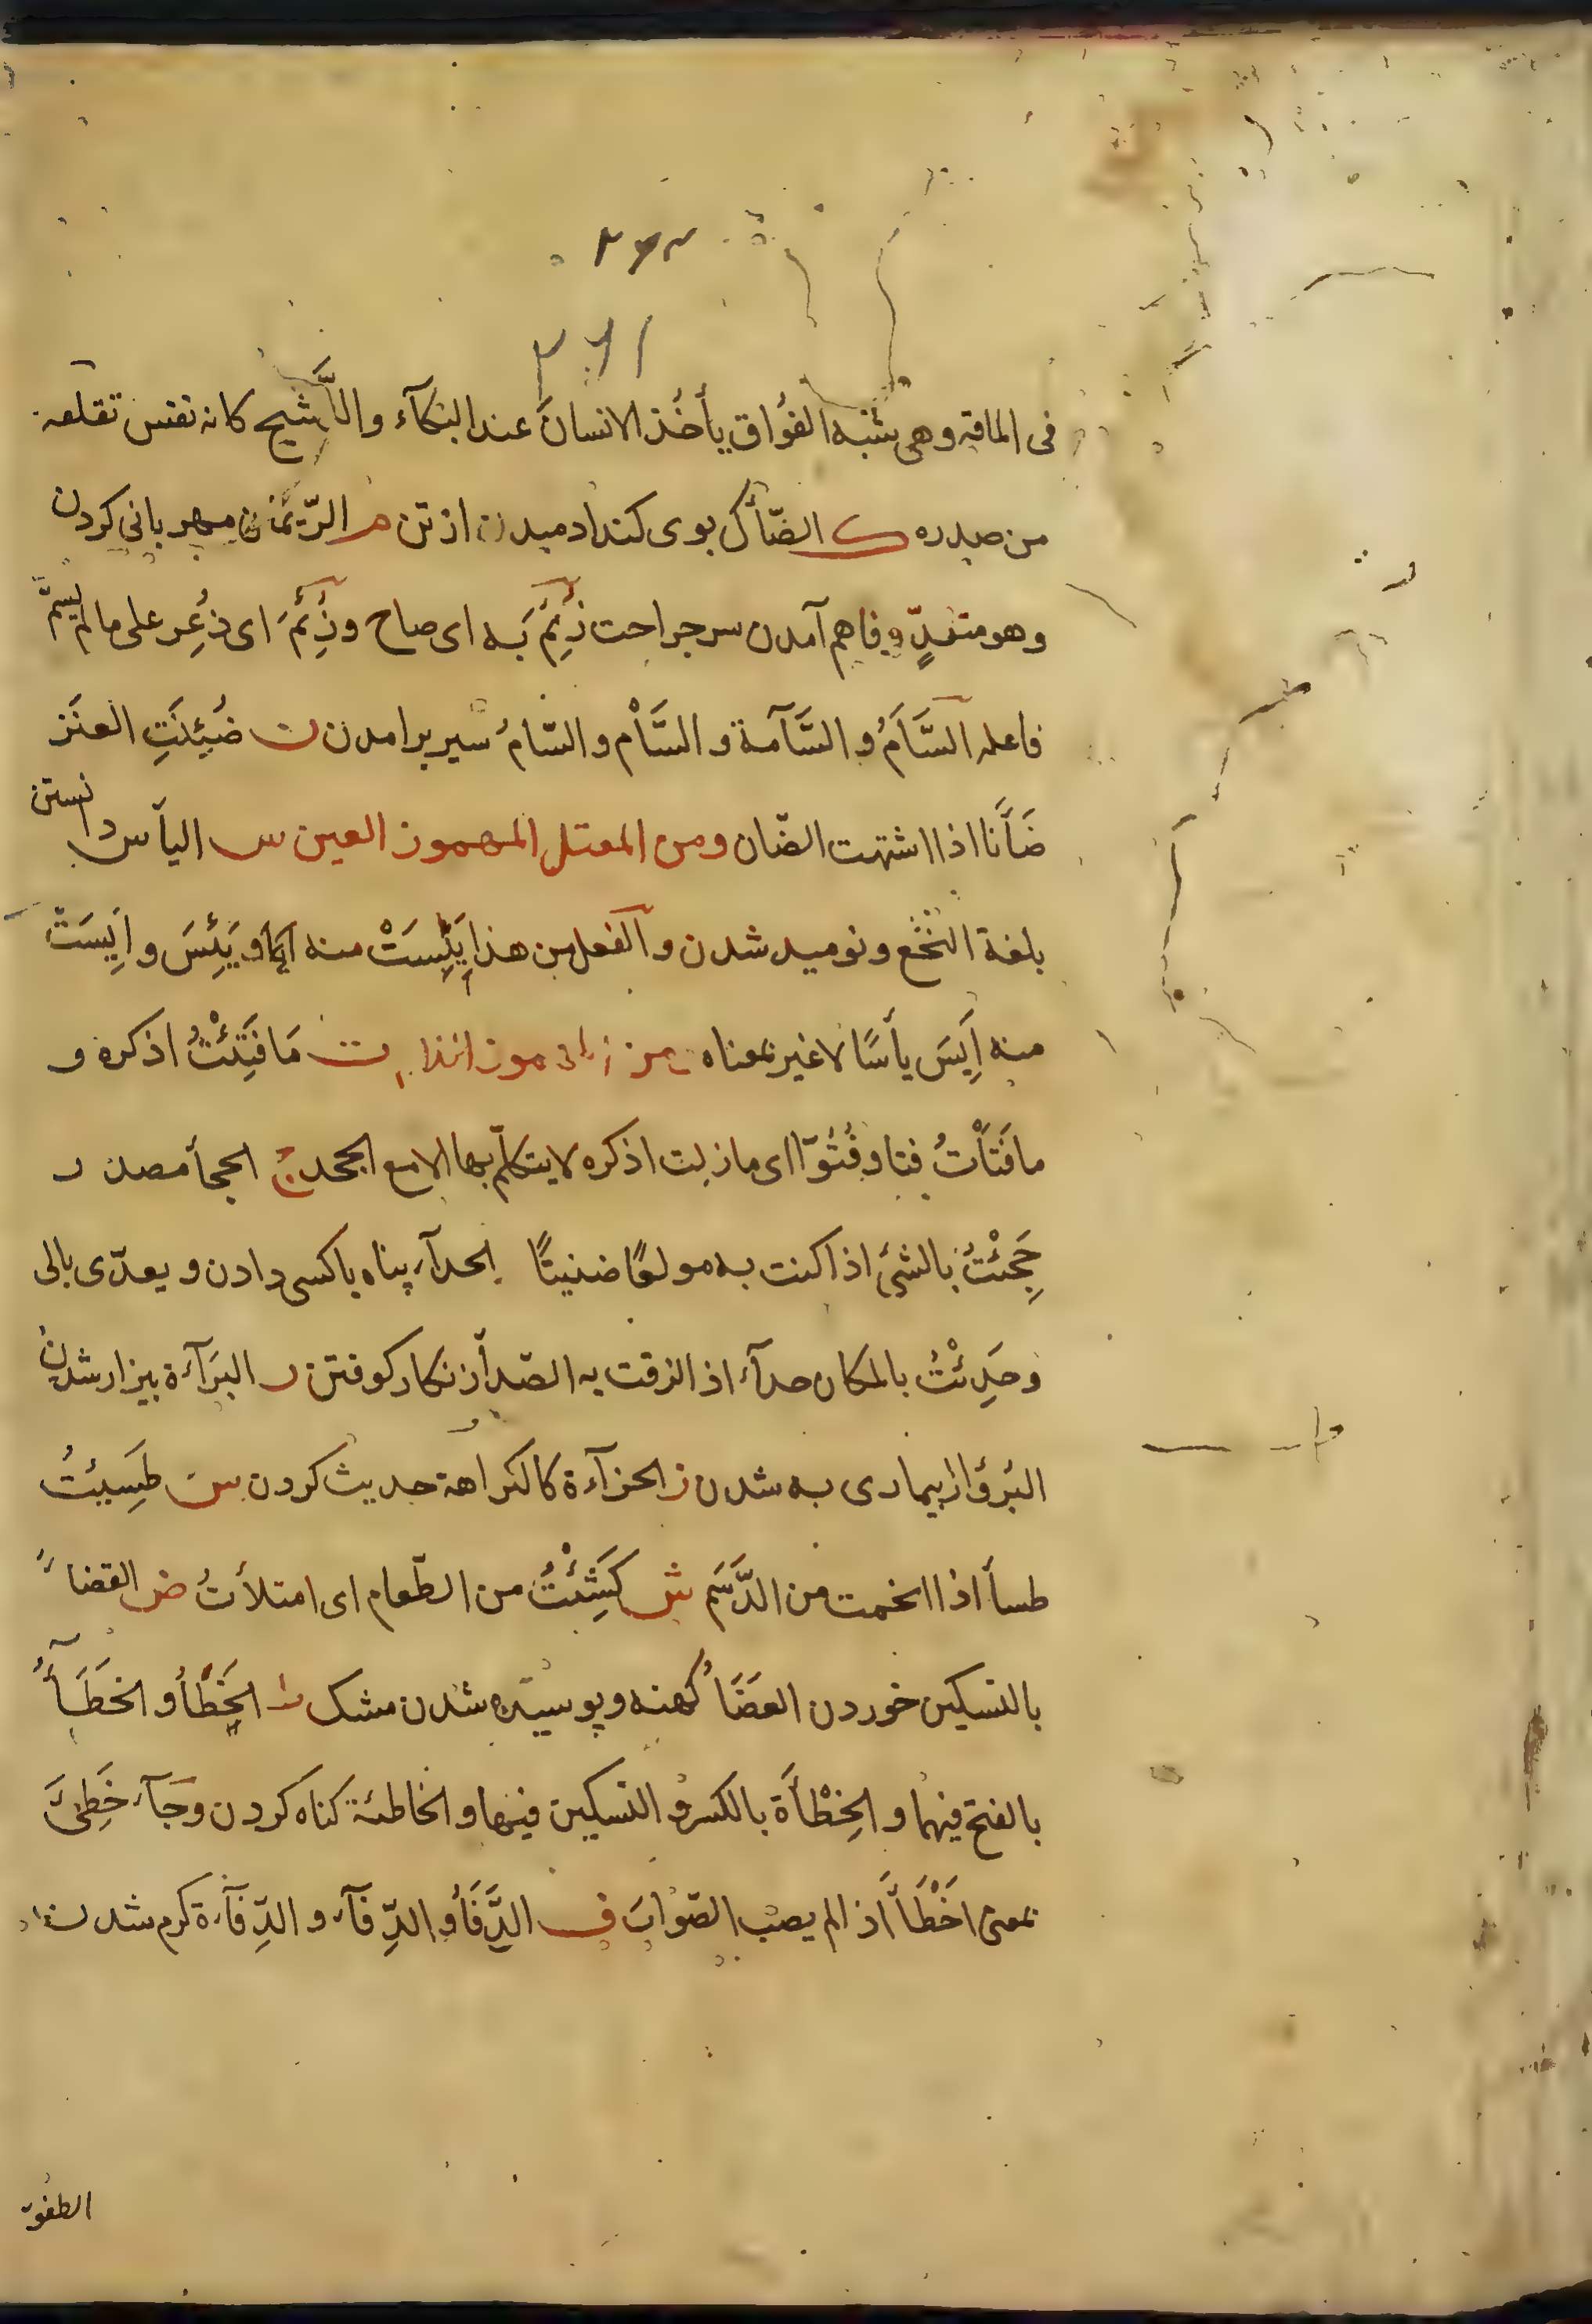 ٢٦١
فى الماقه وهى شبه الفُوَاق يأخُذ الانسانَ عند البكآء والنَّشيج كانه نفس تقلعه
من صدره ك الضّأك بوى كند ادميدن از تن م الرّئمان مهربانى كردن
وهو متعدٍّ وفاهم آمدن سر جراحت ذُئِمَ به اى صاح وذُئِمَ اى ذُعِر على ما لم يسمَّ
فاعله السَّأَمُ والسَّآمة والسَّأْم والسّامُ سير برامدن ن ضَئِنَتِ العنَز
ضَأَنا اذا اشتهت الضّان ومن المعتل المهموز العين س اليأس دانستن
بلغة النَّخَع ونوميد شدن والفعل من هذا يَئِسَتْ منه ويَئِسَ وايِسَتْ
منه اَيِسَ يأسًا لا غير بمعناه ت مَا فَتِئْتُ اذكره و
ما فَتَأْتُ فتا وفُتُوّا اى ما زلت اذكره لا يتكلّم بها الا مع الجحد ج الحجأ مصدر
حَجِئْتُ بالشئ اذا كنت به مولعًا ضنينًا الحدآء پناه باكسى دادن ويعدّى بالى
وحَدِئْتُ بالمكان حدآء اذا لزقت به الصّدأ زنكار كوفتن ر البَرَآءة بيزار شدن
البُرؤ از بيمارى به شدن ز الحزآءة كالكراهة حديث كردن س طَسِيئتُ
طسأ اذا اتخمت من الدَّسَم ش كَشِئْتُ من الطّعام اى امتلأتُ ض القضأ
بالتسكين خوردن القضَأ كهنه وپوسيده شدن مشك ط الخِطْأ والخَطَأ
بالفتح فيهما والخِطْأَة بالكسر والتسكين فيها والخاطئة كناه كردن وجَآء خَطِئَ
بمعنى اَخْطَأَ اذا لم يصب الصّوابَ ف الدَّفَأُ والدِّفآء والدِّفآءة كرم شدن
الطفوّ